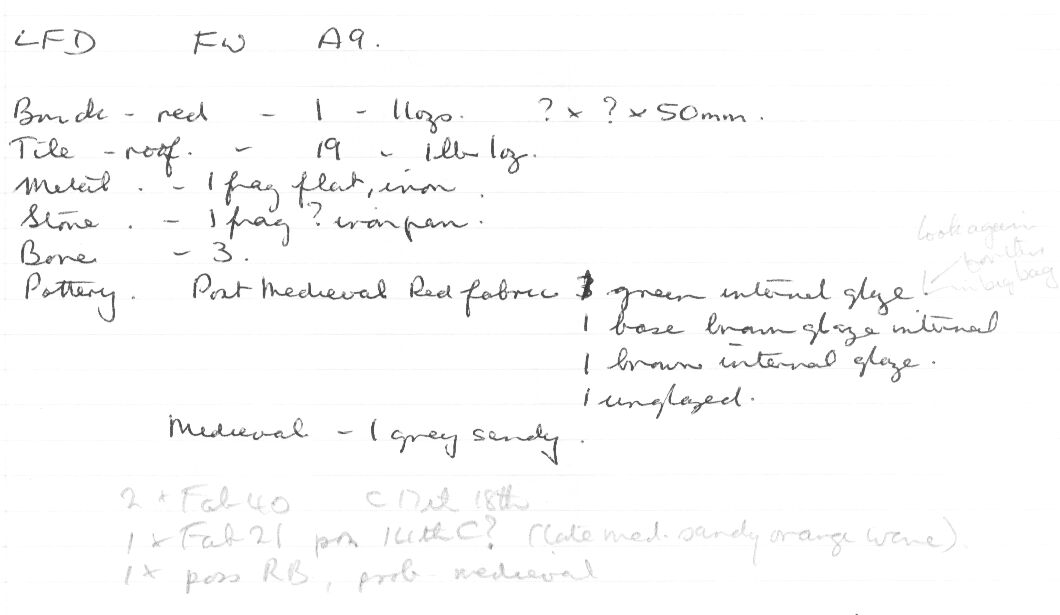 LFD FW A9.
Brick - red - 1 - 11ozs. ? x ? x 50mm.
Tile - roof. - 19 - 1lb 1oz.
Metal. - 1 frag flat, iron.
Stone. - 1 frag ? ironpan.
Bone - 3.
look again
in big bag
Pottery. Post Medieval Red fabric 1 green internal glaze.
1 base brown glaze internal
1 brown internal glaze.
1 unglazed.
Medieval - 1 grey sandy.
2 x Fab 40 C17th 18th
1 x Fab 21 poss 14th C? (late med. sandy orange ware).
1 x poss RB, prob medieval